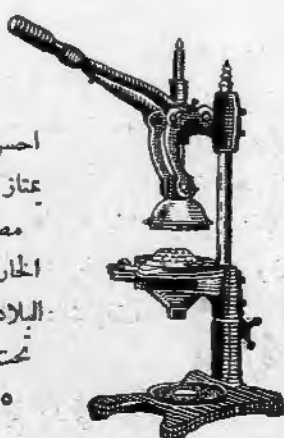 احسن
يمتاز
مصـ
الخار
البلاد
تحت
٥